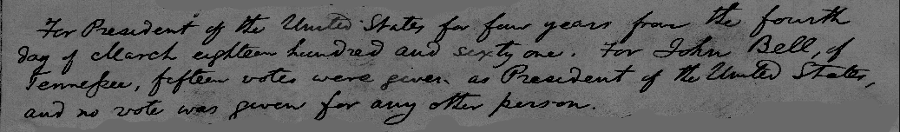 For President of the United States for four years from the fourth
day of March eighteen hundred and sixty one. For John Bell, of
Tennessee, fifteen votes were given as President of the United States,
and no vote was given for any other person.